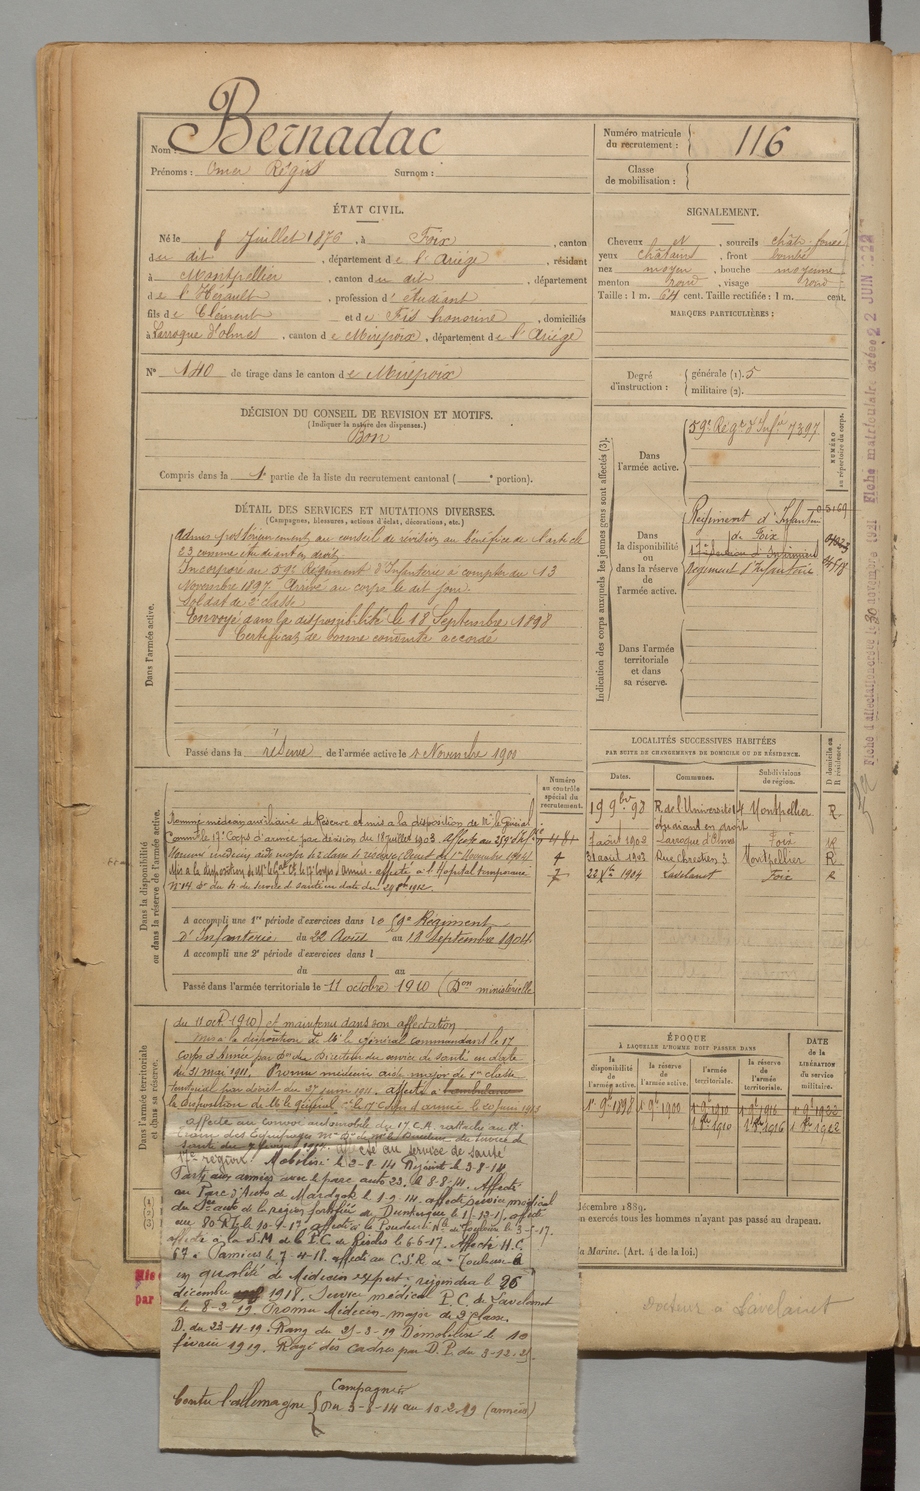 Nom : Bernadac
Prénoms : Omer Régis Surnom :
Numéro matricule du recrutement : 116
Classe de mobilisation :
ÉTAT CIVIL.
Né le 8 Juillet 1876, à Foix, canton
du dit, département de l'Ariège, résidant
à Montpellier, canton du dit, département
de l'Hérault, profession d'étudiant
fils de Clément et de Fis honorine, domiciliés
à Larroque d'olmes, canton de Mirepoix, département de l'Ariège
N° 140 de tirage dans le canton de Mirepoix
SIGNALEMENT.
Cheveux et, sourcils chât. foncé
yeux châtains, front bombé
nez moyen, bouche moyenne
menton rond, visage rond
Taille : 1 m. 64 cent. Taille rectifiée : 1 m. cent.
MARQUES PARTICULIÈRES :
Degré d'instruction : générale (1). 5
militaire (2).
DÉCISION DU CONSEIL DE REVISION ET MOTIFS.
(Indiquer la nature des dispenses.)
Bon
Compris dans la 1e partie de la liste du recrutement cantonal ( e portion).
DÉTAIL DES SERVICES ET MUTATIONS DIVERSES.
(Campagnes, blessures, actions d'éclat, décorations, etc.)
Dans l'armée active.
Admis postérieurement au conseil de révision au bénéfice de l'article
23 comme étudiant en droit.
Incorporé au 59e Régiment d'Infanterie à compter du 13
Novembre 1897. Arrivé au corps le dit jour.
Soldat de 2e classe
Envoyé dans la disponibilité le 18 Septembre 1898
Certificat de bonne conduite accordé
Passé dans la réserve de l'armée active le 1 Novembre 1900
Indication des corps auxquels les jeunes gens sont affectés (3).
NUMÉRO au répertoire du corps.
Dans l'armée active.
59e Régt d'Infie 7397
Dans la disponibilité ou dans la réserve de l'armée active.
Régiment d'Infanterie
de Foix
17e Section d'Infirmiers
Régiment d'Infanterie
Dans l'armée territoriale et dans sa réserve.
LOCALITÉS SUCCESSIVES HABITÉES
PAR SUITE DE CHANGEMENTS DE DOMICILE OU DE RÉSIDENCE.
Dates. Communes. Subdivisions de région. D domicile ou R résidence.
19 9bre 98 R. de l'Université 14 Montpellier R.
étudiant en droit
1 août 1903 Larroque d'Olmes Foix R
31 août 1903 Rue Chrestien 3 Montpellier R
22 Xbre 1904 Lavelanet Foix R
Dans la disponibilité ou dans la réserve de l'armée active.
Numéro au contrôle spécial du recrutement.
Nommé médecin auxiliaire de Réserve et mis à la disposition de Mr le Général
Commt le 17e Corps d'armée par décision du 18 Juillet 1903. affecté au 259e d'Infie
Nommé médecin aide major de 2e classe de réserve (Décret du 1er Novembre 1904)
Mis à la disposition de Mr le Gal Ct le 17e corps d'armée. affecté à l'Hôpital temporaire
N° 14 du service de santé en date du 29 8bre 1912.
A accompli une 1re période d'exercices dans le 59e Régiment
d'Infanterie du 22 Août au 18 Septembre 1904
A accompli une 2e période d'exercices dans l
du au
Passé dans l'armée territoriale le 11 octobre 1910 (Don ministérielle
Dans l'armée territoriale et dans sa réserve.
du 11 oct. 1910) et maintenu dans son affectation
Mis à la disposition de Mr le Général commandant le 17
corps d'Armée par Don du Directeur du service de santé en date
du 31 mai 1911. Promu médecin aide major de 1re classe
territorial par décret du 27 juin 1911. affecté à l'ambulance
la disposition de Mr le Général Ct le 17e Corps d'armée le 20 juin 1913
affecté au convoi automobile du 17 C.A. rattaché au 17e
affecté au service de santé
17e région. Mobilisé le 3-8-14 Rejoint le 3-8-14
Parti aux armées avec le parc auto 23, le 8-8-14. Affecté
au Parc d'Auto de Mardyck le 1-2-14. affecté service médical
de la région fortifiée de Dunkerque le 1-12-15. affecté
au 80e R.I. le 10-4-17. affecté à la Poudrerie Nle de Toulouse le 3-5-17.
affecté à la S.M. de la P.C. de Rieslis le 6-6-17. Affecté H.C.
67 à Pamiers le 7-4-18. affecté au C.S.R. de Toulouse
en qualité de Médecin expert, rejoindra le 26
décembre 1918. Service médical P.C. de Lavelanet
le 8-2-19 Promu Médecin major de 2e classe.
D. du 23-11-19. Rang du 25-3-19 Démobilisé le 10
février 1919. Rayé des cadres par D.P. du 3-12-25.
Campagnes
Contre l'allemagne Du 3-8-14 au 10-2-19 (armées)
ÉPOQUE À LAQUELLE L'HOMME DOIT PASSER DANS
la disponibilité de l'armée active. la réserve de l'armée active. l'armée territoriale. la réserve de l'armée territoriale.
DATE de la LIBÉRATION du service militaire.
1er 9bre 1898 1er 9bre 1900 1er 9bre 1910 1er 9bre 1916 1er 9bre 1922
1er 8bre 1910 1er 8bre 1916 1er 8bre 1922
décembre 1889.
on exercés tous les hommes n'ayant pas passé au drapeau.
la Marine. (Art. 4 de la loi.)
Docteur à Lavelanet
Fiche d'affectation créée le 30 novembre 1921 Fiche matriculaire créée 22 JUIN 1922